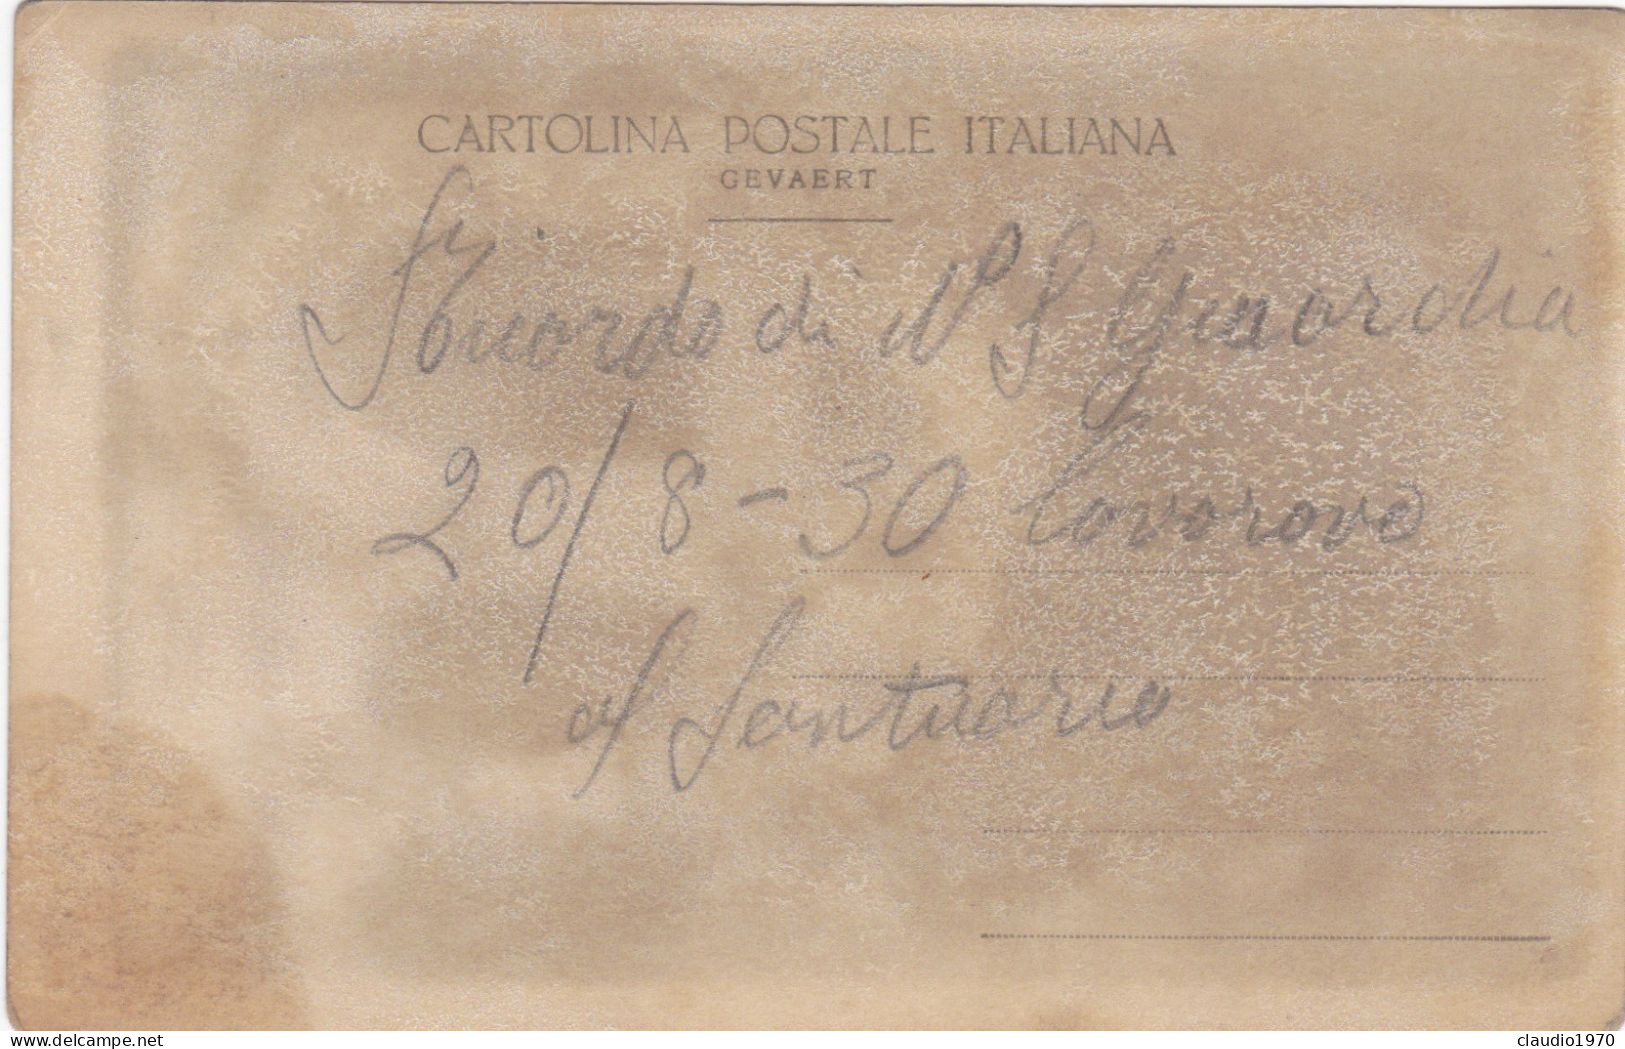 CARTOLINA POSTALE ITALIANA
GEVAERT
Ricordo di N S Guardia
20/8-30 Lavoravo
al Santuario
delcampe.net
claudio1970